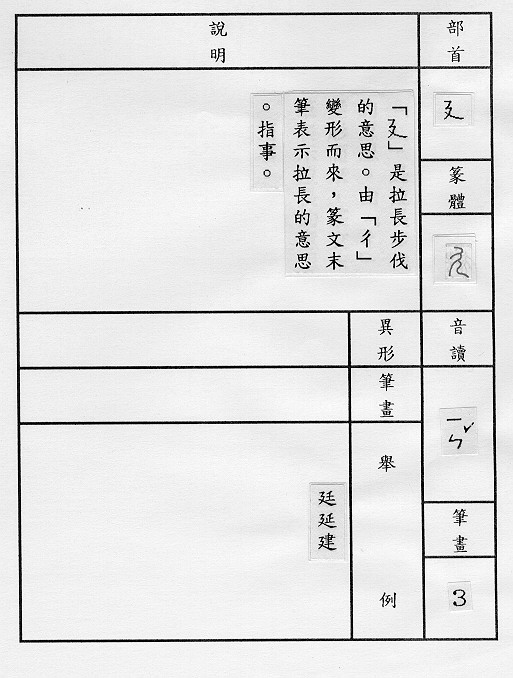 部首
廴
篆體
音讀
ㄧㄣˇ
筆畫
3
說明
「廴」是拉長步伐
的意思。由「彳」
變形而來，篆文末
筆表示拉長的意思
。指事。
異形
筆畫
舉例
廷延建